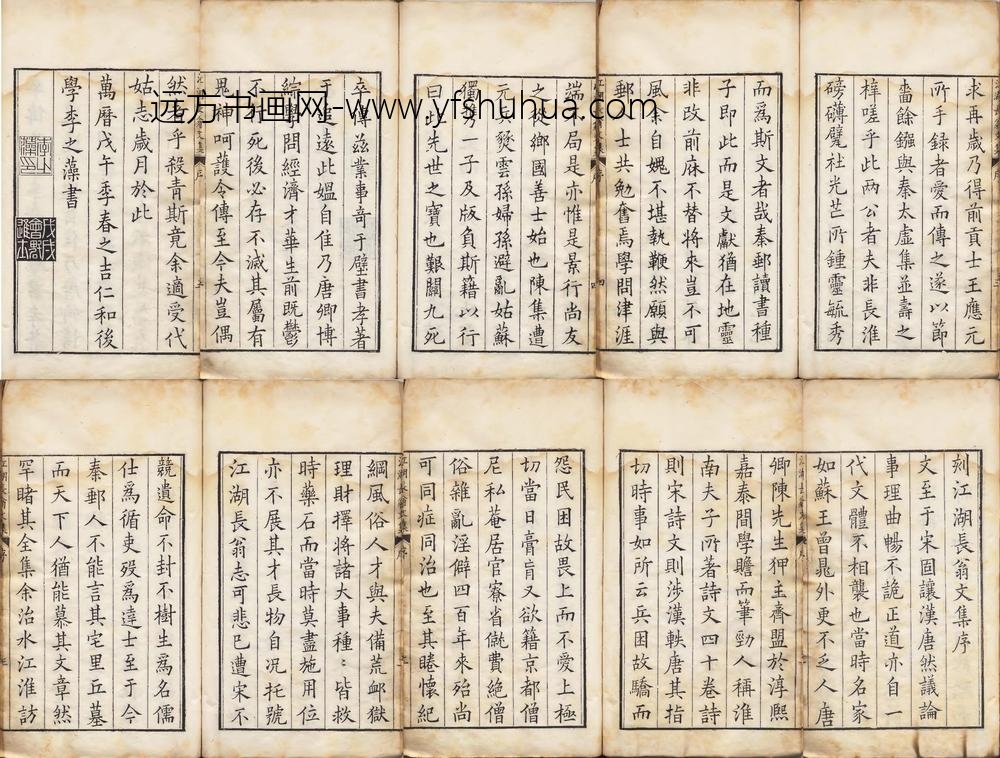 刻江湖長翁文集序
文至于宋固讓漢唐然議論
事理曲暢不詭正道亦自一
代文體不相襲也當時名家
如蘇王曾晁外更不乏人唐
卿陳先生狎主齊盟於淳熙
嘉泰間學贍而筆勁人稱淮
南夫子所著詩文四十卷詩
則宋詩文則涉漢軼唐其指
切時事如所云兵困故驕而
怨民困故畏上而不愛上極
切當日膏肓又欲籍京都僧
尼私菴居官寮省僦費絕僧
俗雜亂淫僻四百年來殆尚
可同症同治也至其睠懷紀
江湖長翁文集 序
綱風俗人才與夫備荒卹獄
理財擇將諸大事種〻皆救
時藥石而當時莫盡施用位
亦不展其才長物自况托號
江湖長翁志可悲已遭宋不
競遺命不封不樹生爲名儒
仕爲循吏歿爲達士至于今
秦郵人不能言其宅里丘墓
而天下人猶能慕其文章然
罕睹其全集余治水江淮訪
求再歲乃得前貢士王應元
所手錄者愛而傳之遂以節
嗇餘鏹與秦太虛集並壽之
梓嗟乎此两公者夫非長淮
磅礴甓社光芒所鍾靈毓秀
而爲斯文者哉秦郵讀書種
子即此而是文獻猶在地靈
非改前庥不替將來豈不可
風余自媿不堪執鞭然願與
郵人士共勉奮焉學問津涯
端緒局是亦惟是景行尚友
之從鄉國善士始也陳集遭
元兵燹雲孫婦孫避亂姑蘇
獨携一子及版負斯籍以行
曰此先世之寶也艱關九死
卒傳茲業事奇于壁書孝著
于追遠此媪自佳乃唐卿博
綜學問經濟才華生前既鬱
不死死後必存不滅其屬有
鬼神呵護令傳至今夫豈偶
然乎殺青斯竟余適受代
姑志歲月於此
萬曆戊午季春之吉仁和後
學李之藻書
远方书画网-www.yfshuhua.com